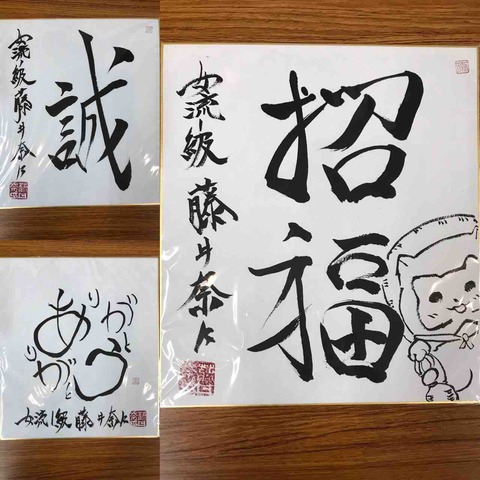 誠
女流1級 藤井奈々
ありがとう
りがと
女流1級 藤井奈々
招福
女流1級 藤井奈々